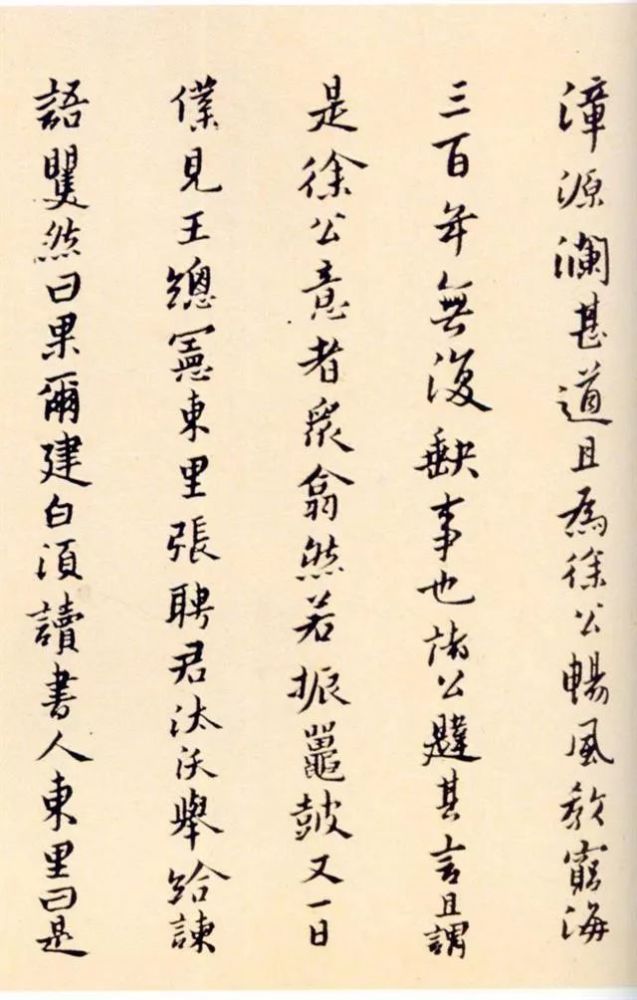 漳源瀾甚道且為徐公暢風教窮海
三百年無復缺事也諸公韙其言且謂
是徐公意者眾翕然若振鼍鼓又一日
僕見王總憲東里張聘君汰沃舉給諫
語瞿然曰果爾建白須讀書人東里曰是